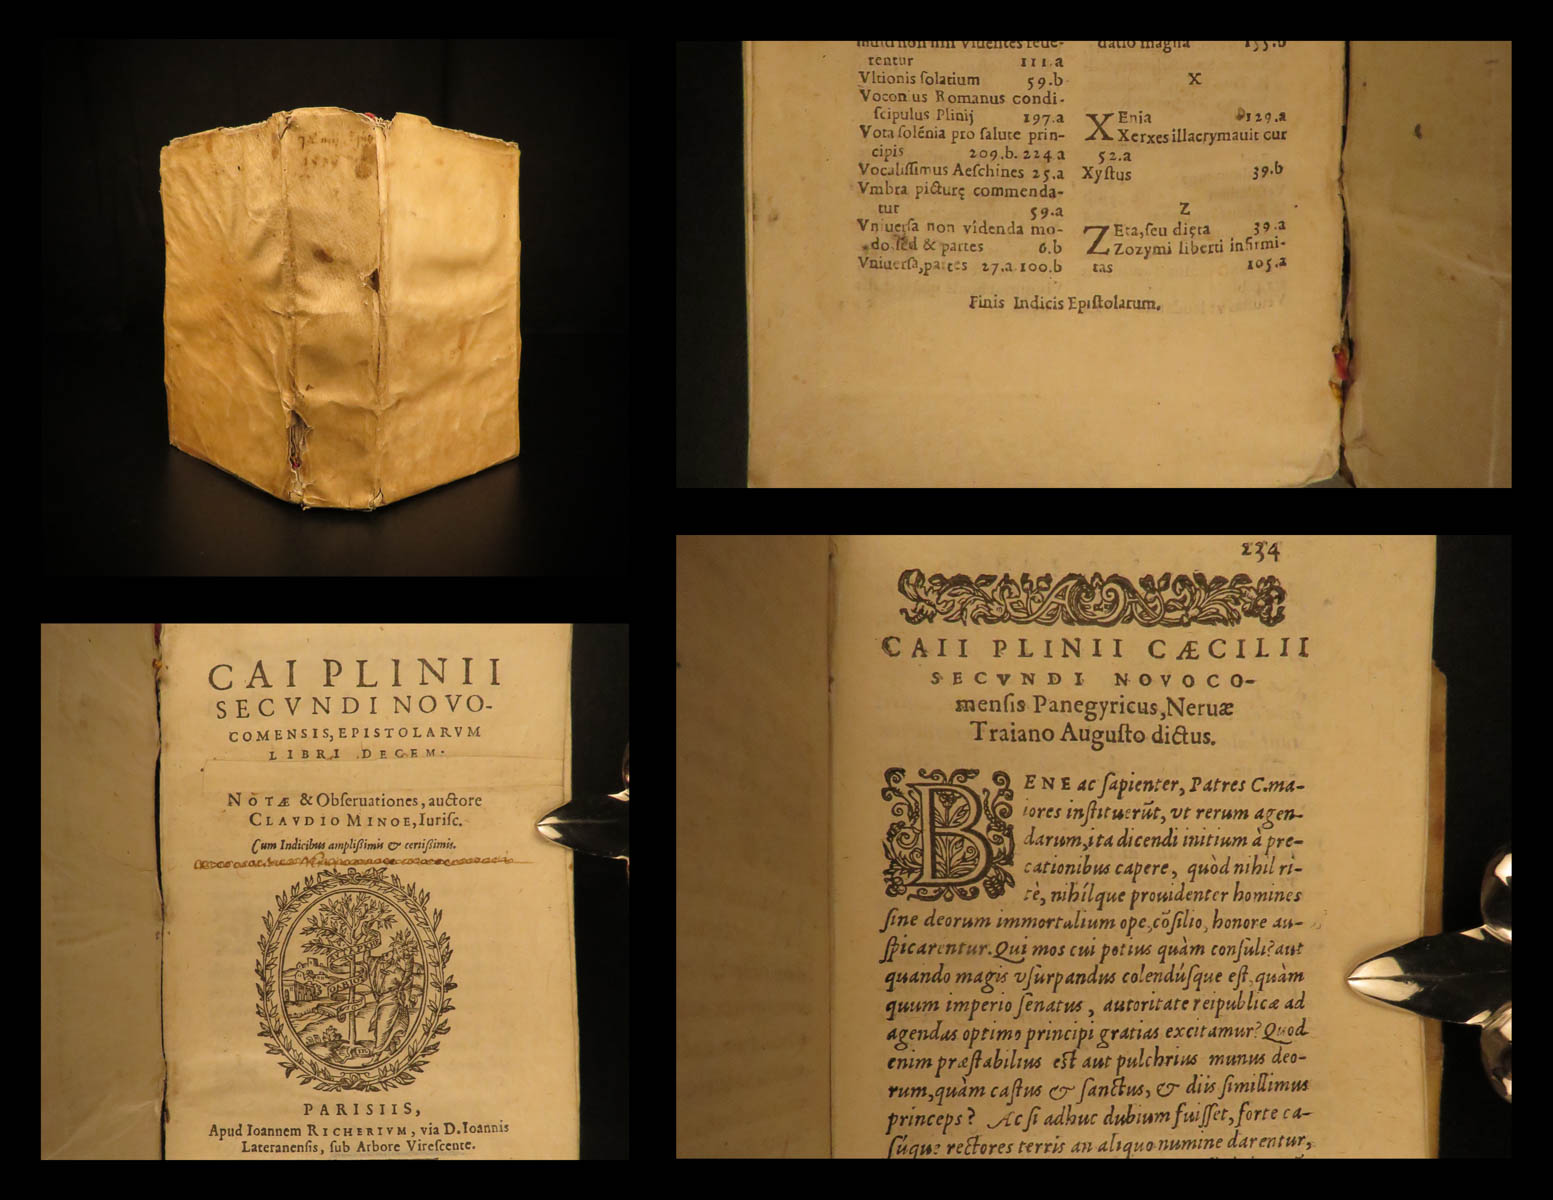 1588
muid non nisi videntes reue-
rentur 111.a
Vltionis solatium 59.b
Voconius Romanus condi-
scipulus Plinij 197.a
Vota solénia pro salute prin-
cipis 209.b. 224.a
Vocalissimus Aeschines 25.a
Vmbra picturę commenda-
tur 59.a
Vniuersa non videnda mo-
do sed & partes 6.b
Vniuersa, partes 27.a.100.b
datio magna 155.b
X
XEnia 129.a
Xerxes illacrymauit cur
52.a
Xystus 39.b
Z
ZEta, seu dięta 39.a
Zozymi liberti infirmi-
tas 105.a
Finis Indicis Epistolarum.
CAI PLINII
SECVNDI NOVO-
COMENSIS, EPISTOLARVM
LIBRI DECEM.
NOTÆ & Obseruationes, auctore
CLAVDIO MINOE, Iurisc.
Cum Indicibus amplißimis & certißimis.
PARISIIS,
Apud Ioannem RICHERIVM, via D. Ioannis
Lateranensis, sub Arbore Virescente.
234
CAII PLINII CÆCILII
SECVNDI NOVOCO-
mensis Panegyricus, Neruæ
Traiano Augusto dictus.
BENE ac sapienter, Patres C. ma-
iores instituerũt, vt rerum agen-
darum, ita dicendi initium à pre-
cationibus capere, quòd nihil ri-
tè, nihílque prouidenter homines
sine deorum immortalium ope, cõsilio, honore au-
spicarentur. Qui mos cui potius quàm consuli? aut
quando magis vsurpandus colendúsque est, quàm
quum imperio senatus, autoritate reipublicæ ad
agendas optimo principi gratias excitamur? Quod
enim præstabilius est aut pulchrius munus deo-
rum, quàm castus & sanctus, & diis simillimus
princeps? Ac si adhuc dubium fuisset, forte ca-
súque rectores terris an aliquo numine darentur,